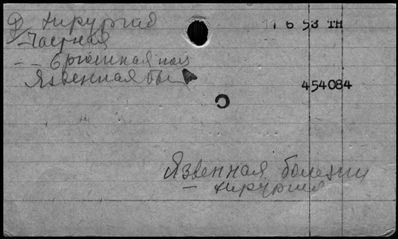 Хирургия 11 6 53 TH
Частная
— — Брюшная пол
Язвенная бол
454084
Язвенная болезни
— хирургия